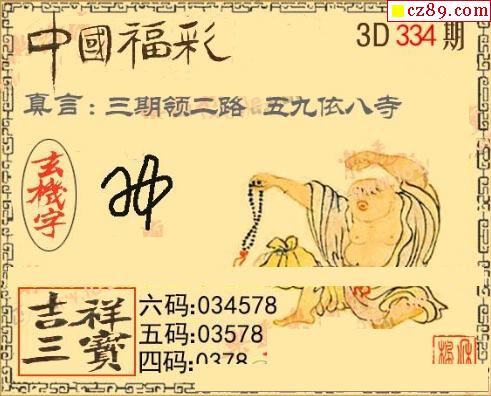 cz89.com
中國福彩
3D 334 期
真言：三期领二路 五九依八寺
玄機字
吉祥三寶
六码:034578
五码:03578
四码:0378